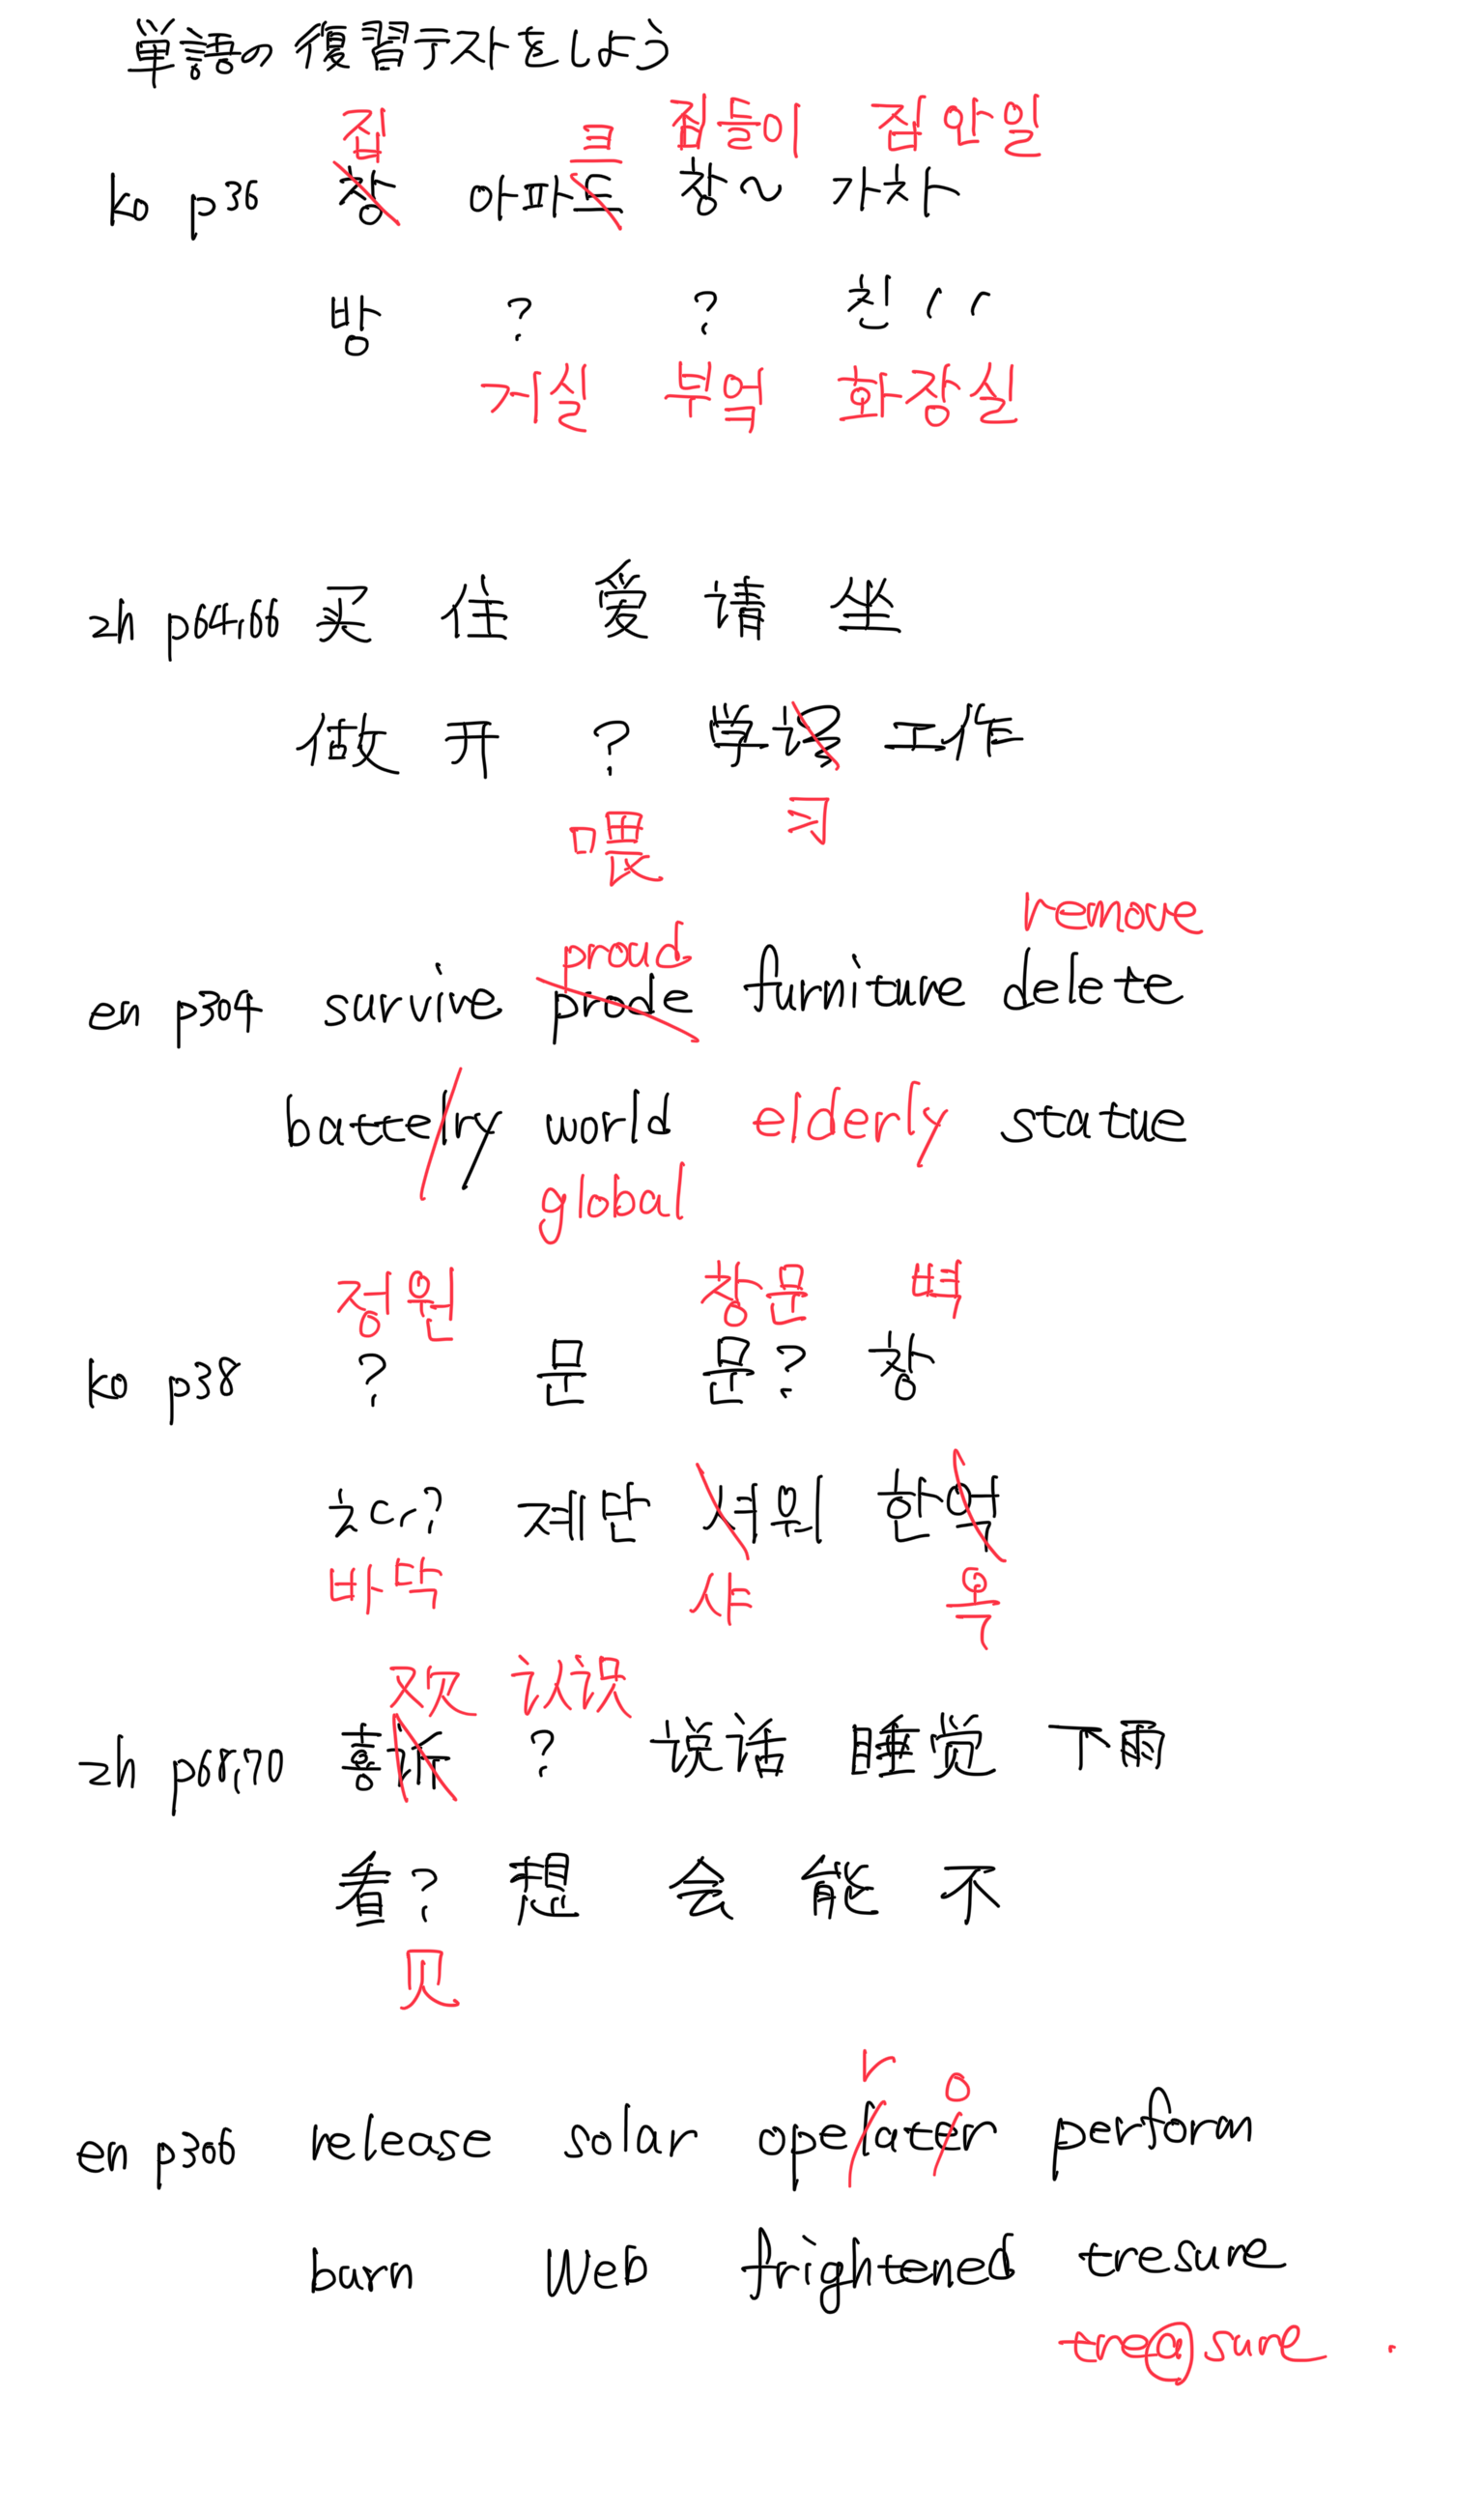 単語の復習テストをしよう
집 크 집들이 집안일
ko p36 창 아파트 창~ 가자
방 ? ? 친〃
거실 부엌 화장실
zh p4th6 买 住 爱 请 坐
做 开 ? 学 工作
喂 习
remove
proud
en p34 survive prode furniture delete
battelry world elderly statue
global
정원 창문 벽
ko p38 ? 문 문? 창
초~? 계단 서워 학역
바닥 샤 욕
欢 认识
zh p4th10 喜 ? 说话 睡觉 下雨
看? 想 会 能 不
见
r o
en p36 release solar opelater perform
burn Web frightened tresure
treasure